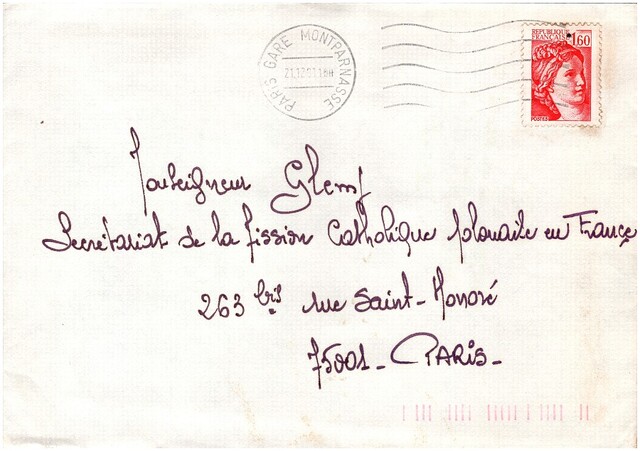 PARIS GARE MONTPARNASSE
REPUBLIQUE
FRANCAISE
1,60
POSTES
Monseigneur Glemp
Secrétariat de la Mission Catholique Polonaise en France
263 bis rue Saint-Honoré
75001 - PARIS -